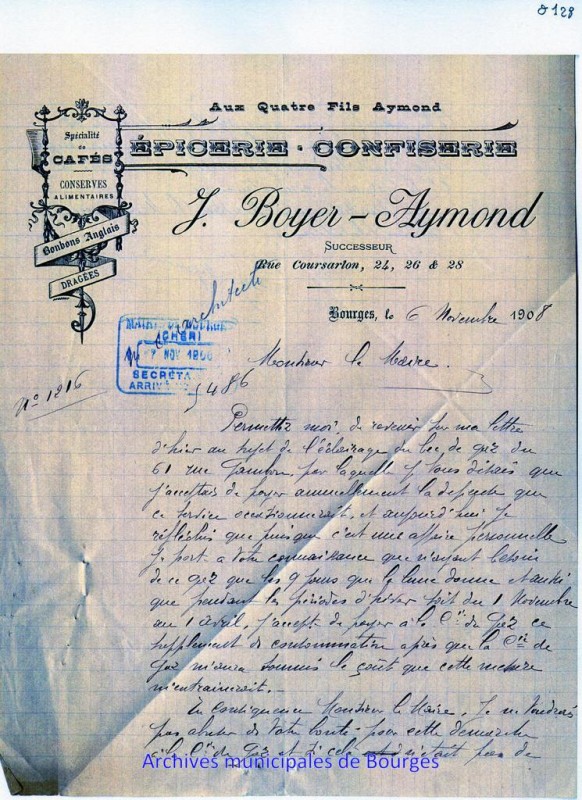 128
Aux Quatre Fils Aymond
ÉPICERIE · CONFISERIE
Spécialité
de
CAFÉS
CONSERVES
ALIMENTAIRES
Bonbons Anglais
DRAGÉES
J. Boyer-Aymond
SUCCESSEUR
Rue Coursarlon, 24, 26 & 28
Bourges, le 6 Novembre 1908
architecte
7 NOV 1908
SECRÉTA
ARRIV
5486
No 1216
Monsieur le Maire.
Permettez moi, de revenir sur ma lettre
d'hier au sujet de l'éclairage du bec de gaz du
61 rue par laquelle je vous disais que
j'acceptais de payer annuellement la dépense que
ce service occasionnerait, et aujourd'hui je
réfléchis que puisque c'est une affaire personnelle
Je port a votre connaissance que n'ayant besoin
de ce gaz que les 9 jours que la lune donne et aussi
que pendant les périodes d'hiver soit du 1 Novembre
au 1 avril, j'accepte de payer à la Cie de Gaz ce
supplément de consommation après que la Cie de
Gaz m'aura soumis le coût que cette mesure
m'entrainerait.-
En conséquence Monsieur le Maire, Je ne voudrais
pas abuser de votre bonté pour cette démarche
la Cie du Gaz et si cela n'était pas de
Archives municipales de Bourges